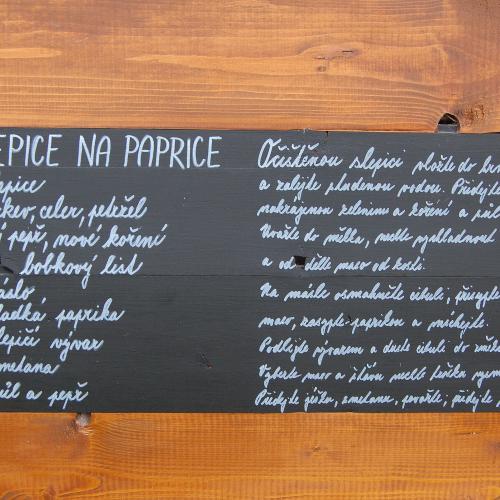 EPICE NA PAPRICE
epice
kev, celer, petržel
ý pepř, nové koření
bobkový list
áslo
ladká paprika
lepičí vývar
metana
ůl a pepř
Očištěnou slepici vložte do
a zalijte studenou vodou. Přidejte
nakrájenou zeleninu a koření a
Uvařte do měkka, nechte vychladnout
a oddělte maso od kostí.
Na másle osmahněte cibuli, přisypte
maso, zasypte paprikou a míchejte.
Podlijte vývarem a duste cibuli do
Vyberte maso a šťávu nechte
Přidejte jíšku, smetanu, povařte, přidejte